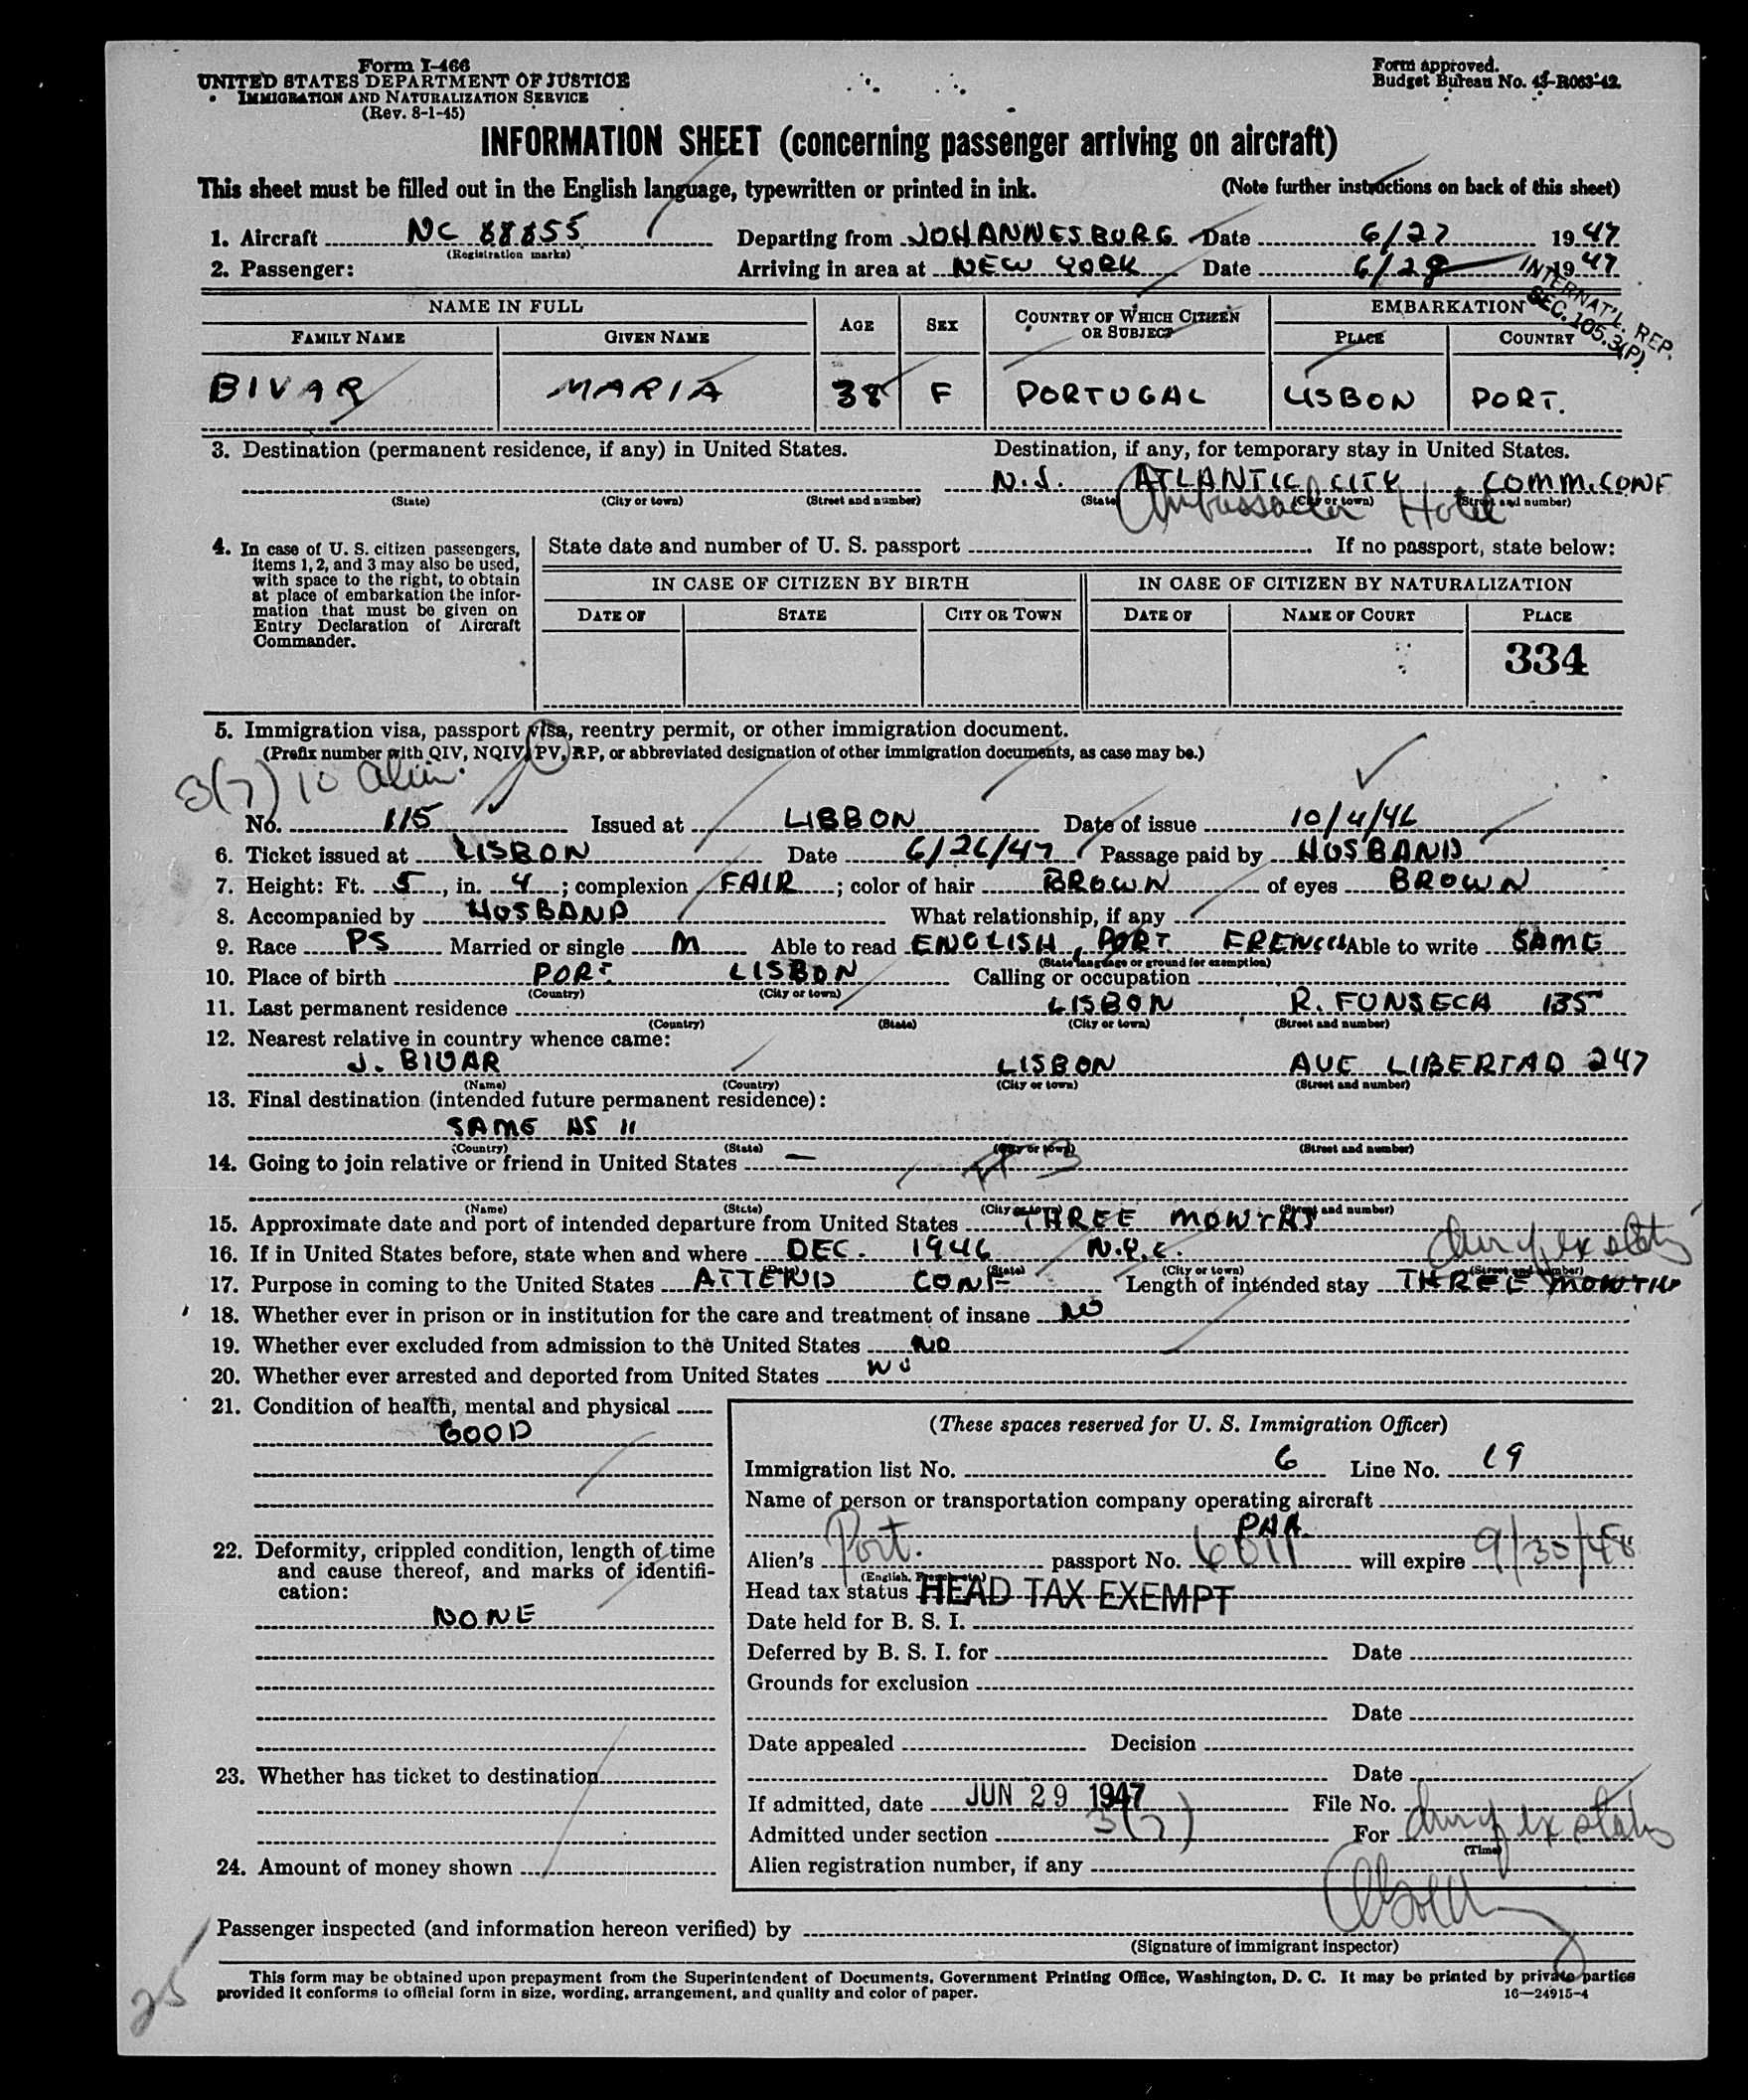 Form I-466
UNITED STATES DEPARTMENT OF JUSTICE
IMMIGRATION AND NATURALIZATION SERVICE
(Rev. 8-1-45)
Form approved.
Budget Bureau No. 43-R063-42.
INFORMATION SHEET (concerning passenger arriving on aircraft)
This sheet must be filled out in the English language, typewritten or printed in ink. (Note further instructions on back of this sheet)
1. Aircraft NC 88855 Departing from JOHANNESBURG Date 6/27 1947
(Registration marks)
2. Passenger: Arriving in area at NEW YORK Date 6/28 1947
INTERNAT'L. REP.
SEC. 105.3(P)
NAME IN FULL AGE SEX COUNTRY OF WHICH CITIZEN OR SUBJECT EMBARKATION
FAMILY NAME GIVEN NAME PLACE COUNTRY
BIVAR MARIA 38 F PORTUGAL LISBON PORT.
3. Destination (permanent residence, if any) in United States. Destination, if any, for temporary stay in United States.
N.J. ATLANTIC CITY COMM. CONF
(State) (City or town) (Street and number) (State) (City or town) (Street and number)
Ambassador Hotel
4. In case of U. S. citizen passengers, items 1, 2, and 3 may also be used, with space to the right, to obtain at place of embarkation the information that must be given on Entry Declaration of Aircraft Commander.
State date and number of U. S. passport If no passport, state below:
IN CASE OF CITIZEN BY BIRTH IN CASE OF CITIZEN BY NATURALIZATION
DATE OF STATE CITY OR TOWN DATE OF NAME OF COURT PLACE
334
5. Immigration visa, passport visa, reentry permit, or other immigration document.
(Prefix number with QIV, NQIV, PV, RP, or abbreviated designation of other immigration documents, as case may be.)
3(7) 10
No. 115 Issued at LISBON Date of issue 10/4/46
6. Ticket issued at LISBON Date 6/26/47 Passage paid by HUSBAND
7. Height: Ft. 5, in. 4; complexion FAIR; color of hair BROWN of eyes BROWN
8. Accompanied by HUSBAND What relationship, if any
9. Race PS Married or single M Able to read ENGLISH, PORT FRENCH Able to write SAME
(State language or ground for exemption)
10. Place of birth PORT. LISBON Calling or occupation
(Country) (City or town)
11. Last permanent residence LISBON R. FONSECA 135
(Country) (State) (City or town) (Street and number)
12. Nearest relative in country whence came:
J. BIVAR LISBON AVE LIBERTAD 247
(Name) (Country) (City or town) (Street and number)
13. Final destination (intended future permanent residence):
SAME AS 11
(Country) (State) (City or town) (Street and number)
14. Going to join relative or friend in United States —
(Name) (State) (City or town) (Street and number)
15. Approximate date and port of intended departure from United States THREE MONTHS
16. If in United States before, state when and where DEC. 1946 N.Y.C.
(Date) (State) (City or town) (Street and number)
17. Purpose in coming to the United States ATTEND CONF Length of intended stay THREE MONTHS
18. Whether ever in prison or in institution for the care and treatment of insane NO
19. Whether ever excluded from admission to the United States NO
20. Whether ever arrested and deported from United States NO
21. Condition of health, mental and physical
GOOD
22. Deformity, crippled condition, length of time and cause thereof, and marks of identification:
NONE
23. Whether has ticket to destination
24. Amount of money shown
(These spaces reserved for U. S. Immigration Officer)
Immigration list No. 6 Line No. 19
Name of person or transportation company operating aircraft
PAA
Alien's Port. passport No. will expire 9/30/48
Head tax status HEAD TAX EXEMPT
Date held for B. S. I.
Deferred by B. S. I. for Date
Grounds for exclusion
Date
Date appealed Decision
Date
If admitted, date JUN 29 1947 File No.
Admitted under section 3(7) For
(Time)
Alien registration number, if any
Passenger inspected (and information hereon verified) by
(Signature of immigrant inspector)
This form may be obtained upon prepayment from the Superintendent of Documents, Government Printing Office, Washington, D. C. It may be printed by private parties
provided it conforms to official form in size, wording, arrangement, and quality and color of paper. 16—24915-4
25